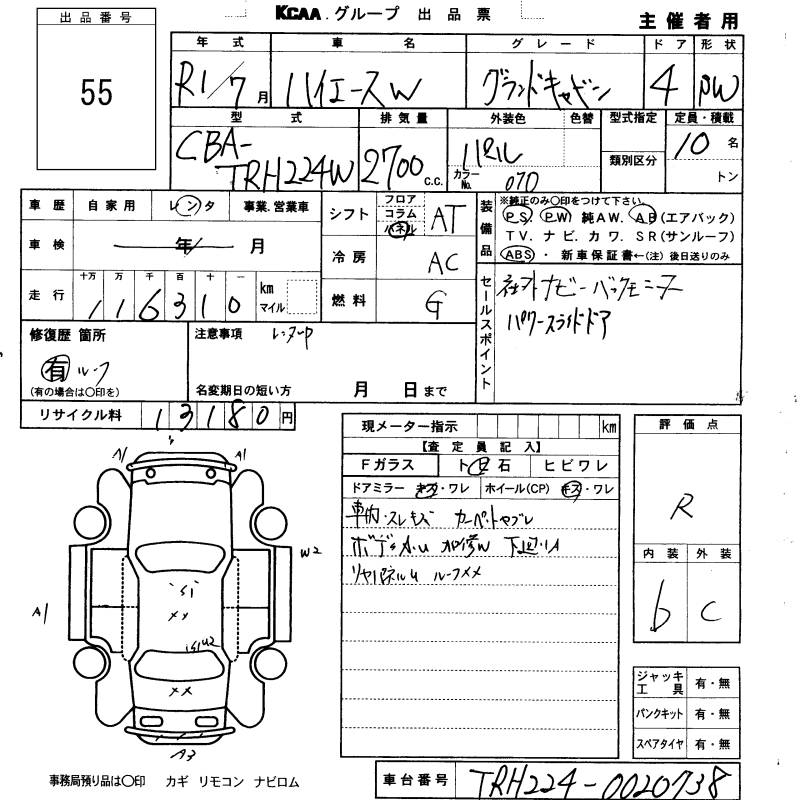 KCAA.グループ 出品票
主催者用
出品番号
55
年式 車名 グレード ドア 形状
R1/7月 ハイエースW グランドキャビン 4 pW
型式 排気量 外装色 色替 型式指定 定員・積載
CBA-
TRH224W 2700 c.c. パール 10名
カラーNo. 070 類別区分 トン
車歴 自家用 レンタ 事業.営業車
車検 年 月
走行 十万 万 千 百 十
116310 km マイル
シフト フロア コラム パネル AT
冷房 AC
燃料 G
装備品
※純正のみ○印をつけて下さい。
PS PW 純AW. AB(エアバック)
TV. ナビ. カワ. SR(サンルーフ)
ABS ・ 新車保証書←(注)後日送りのみ
セールスポイント
社外ナビ バックモニター
パワースライドドア
修復歴 箇所
有 ルーフ
(有の場合は○印を)
注意事項 レンタUP
名変期日の短い方 月 日まで
リサイクル料 13180円
現メーター指示 km
【査定員記入】
Fガラス ト石 ヒビワレ
ドアミラー キズ・ワレ ホイール(CP) キズ・ワレ
車内スレキズ カーペットヤブレ
ボディ 下廻り
リヤパネルU ルーフメメ
評価点
R
内装 外装
b C
ジャッキ工具 有・無
パンクキット 有・無
スペアタイヤ 有・無
A1 A1
W2
S1
A1
メメ
S1 U2
メメ
A3
事務局預り品は○印 カギ リモコン ナビロム
車台番号 TRH224-0020738